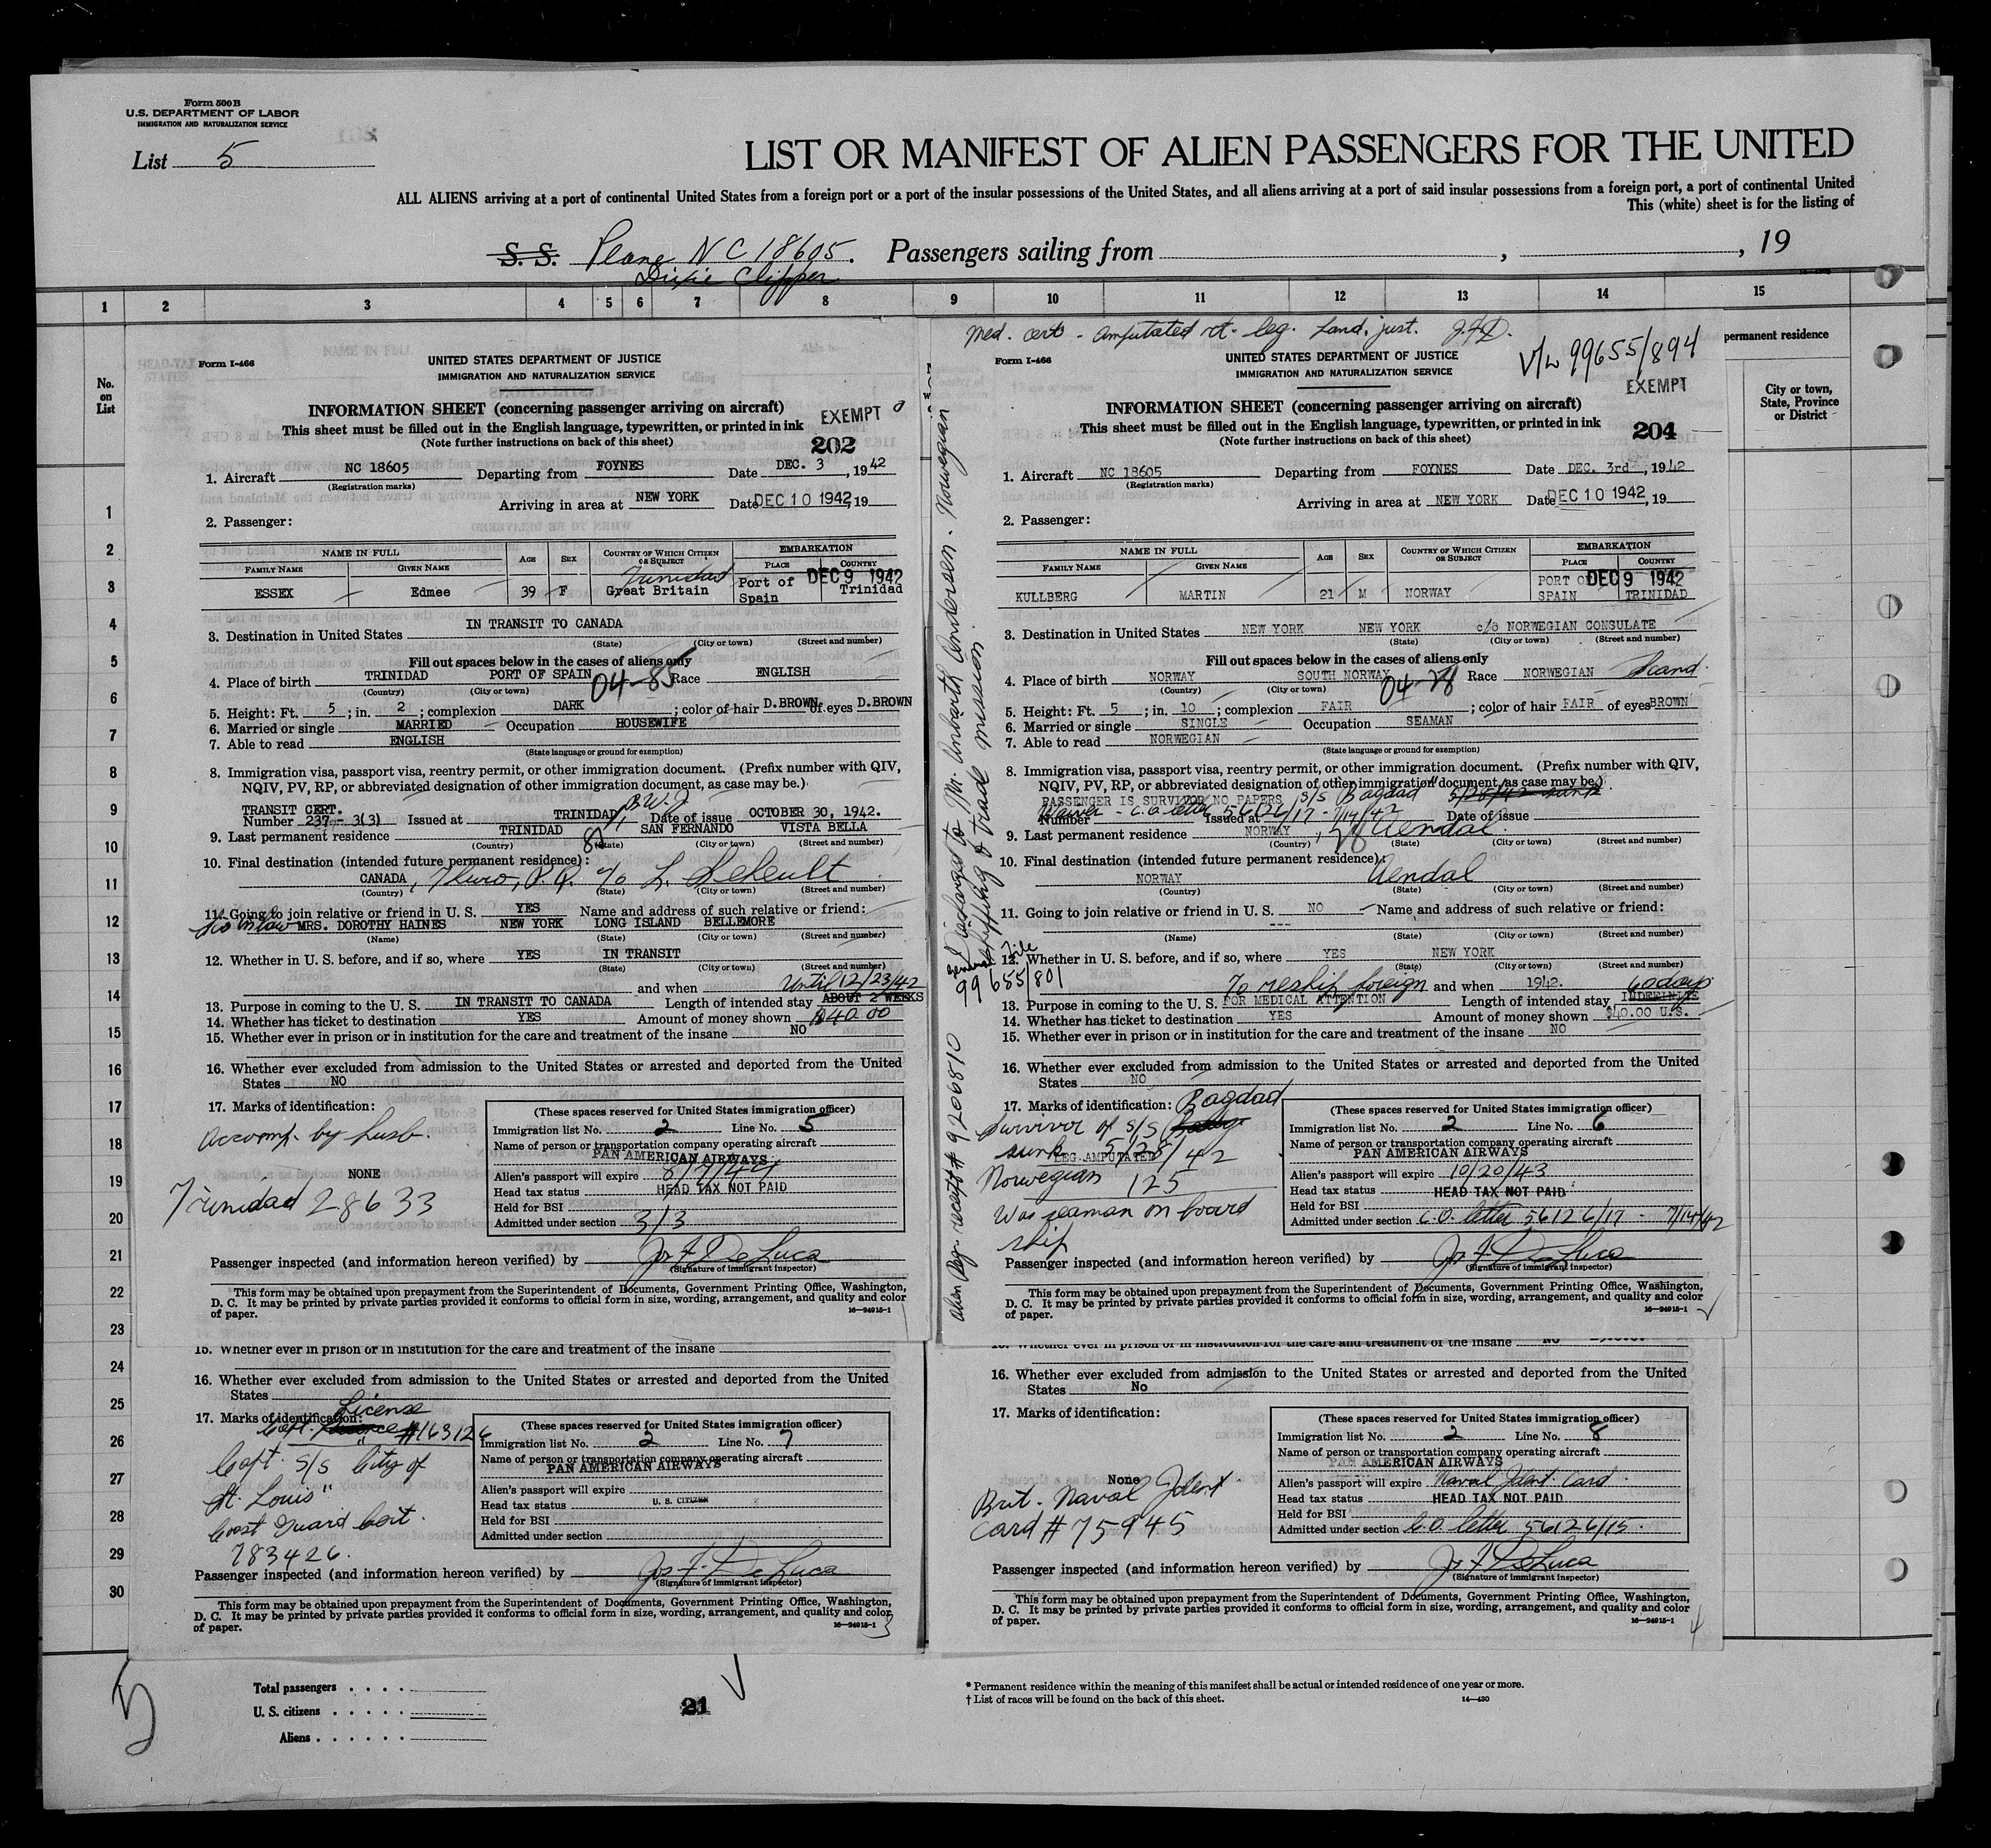 Form 500B
U.S. DEPARTMENT OF LABOR
IMMIGRATION AND NATURALIZATION SERVICE
List 5
LIST OR MANIFEST OF ALIEN PASSENGERS FOR THE UNITED
ALL ALIENS arriving at a port of continental United States from a foreign port or a port of the insular possessions of the United States, and all aliens arriving at a port of said insular possessions from a foreign port, a port of continental United
This (white) sheet is for the listing of
S. S. Plane NC 18605. Passengers sailing from , , 19
Dixie Clipper
1 2 3 4 5 6 7 8 9 10 11 12 13 14 15
No. on List
permanent residence
City or town, State, Province or District
1
2
3
4
5
6
7
8
9
10
11
12
13
14
15
16
17
18
19
20
21
22
23
24
25
26
27
28
29
30
Form I-466
UNITED STATES DEPARTMENT OF JUSTICE
IMMIGRATION AND NATURALIZATION SERVICE
INFORMATION SHEET (concerning passenger arriving on aircraft)
EXEMPT
This sheet must be filled out in the English language, typewritten, or printed in ink
(Note further instructions on back of this sheet)
202
1. Aircraft NC 18605 Departing from FOYNES Date DEC. 3, 1942
(Registration marks)
Arriving in area at NEW YORK Date DEC 10 1942, 19
2. Passenger:
NAME IN FULL AGE SEX COUNTRY OF WHICH CITIZEN OR SUBJECT EMBARKATION
FAMILY NAME GIVEN NAME PLACE COUNTRY
Trinidad DEC 9 1942
ESSEX Edmee 39 F Great Britain Port of Spain Trinidad
3. Destination in United States IN TRANSIT TO CANADA
(State) (City or town) (Street and number)
Fill out spaces below in the cases of aliens only
4. Place of birth TRINIDAD PORT OF SPAIN 04-85 Race ENGLISH
(Country) (City or town)
5. Height: Ft. 5; in. 2; complexion DARK; color of hair D.BROWN of eyes D.BROWN
6. Married or single MARRIED Occupation HOUSEWIFE
7. Able to read ENGLISH
(State language or ground for exemption)
8. Immigration visa, passport visa, reentry permit, or other immigration document. (Prefix number with QIV,
NQIV, PV, RP, or abbreviated designation of other immigration document, as case may be.)
TRANSIT CERT. B.W.I.
Number 237-3(3) Issued at TRINIDAD Date of issue OCTOBER 30, 1942.
9. Last permanent residence TRINIDAD SAN FERNANDO VISTA BELLA
(Country) (State) (City or town) (Street and number)
10. Final destination (intended future permanent residence):
CANADA, c/o L.
(Country) (State) (City or town) (Street and number)
11. Going to join relative or friend in U. S. YES Name and address of such relative or friend:
MRS. DOROTHY HAINES NEW YORK LONG ISLAND BELLEMORE
(Name) (State) (City or town) (Street and number)
12. Whether in U. S. before, and if so, where YES IN TRANSIT
(State) (City or town) (Street and number)
and when Until 12/23/42
13. Purpose in coming to the U. S. IN TRANSIT TO CANADA Length of intended stay ABOUT 2 WEEKS
14. Whether has ticket to destination YES Amount of money shown $40.00
15. Whether ever in prison or in institution for the care and treatment of the insane NO
16. Whether ever excluded from admission to the United States or arrested and deported from the United
States NO
17. Marks of identification:
Accomp. by husb.
NONE
Trinidad 28633
(These spaces reserved for United States immigration officer)
Immigration list No. 2 Line No. 5
Name of person or transportation company operating aircraft
PAN AMERICAN AIRWAYS
Alien's passport will expire 8/7/44
Head tax status HEAD TAX NOT PAID
Held for BSI
Admitted under section 3/3
Passenger inspected (and information hereon verified) by Jos F. DeLuca
(Signature of immigrant inspector)
This form may be obtained upon prepayment from the Superintendent of Documents, Government Printing Office, Washington,
D. C. It may be printed by private parties provided it conforms to official form in size, wording, arrangement, and quality and color
of paper. 16-24915-1
15. Whether ever in prison or in institution for the care and treatment of the insane
16. Whether ever excluded from admission to the United States or arrested and deported from the United
States
17. Marks of identification:
License
Capt. #163126
Capt. S/S City of
St. Louis"
Coast Guard Cert.
783426.
(These spaces reserved for United States immigration officer)
Immigration list No. 2 Line No. 7
Name of person or transportation company operating aircraft
PAN AMERICAN AIRWAYS
Alien's passport will expire
Head tax status U. S. CITIZEN
Held for BSI
Admitted under section
Passenger inspected (and information hereon verified) by Jos F. DeLuca
(Signature of immigrant inspector)
This form may be obtained upon prepayment from the Superintendent of Documents, Government Printing Office, Washington,
D. C. It may be printed by private parties provided it conforms to official form in size, wording, arrangement, and quality and color
of paper. 16-24915-1
3
Med. cert - Amputated rt. leg. Land. just. J.F.D.
Form I-466
UNITED STATES DEPARTMENT OF JUSTICE
IMMIGRATION AND NATURALIZATION SERVICE
V/L 99655/894
EXEMPT
INFORMATION SHEET (concerning passenger arriving on aircraft)
This sheet must be filled out in the English language, typewritten, or printed in ink
(Note further instructions on back of this sheet)
204
1. Aircraft NC 18605 Departing from FOYNES Date DEC. 3rd, 1942
(Registration marks)
Arriving in area at NEW YORK Date DEC 10 1942, 19
2. Passenger:
NAME IN FULL AGE SEX COUNTRY OF WHICH CITIZEN OR SUBJECT EMBARKATION
FAMILY NAME GIVEN NAME PLACE COUNTRY
DEC 9 1942
KULLBERG MARTIN 21 M NORWAY PORT OF SPAIN TRINIDAD
3. Destination in United States NEW YORK NEW YORK c/o NORWEGIAN CONSULATE
(State) (City or town) (Street and number)
Fill out spaces below in the cases of aliens only
4. Place of birth NORWAY SOUTH NORWAY 04-78 Race NORWEGIAN Scand.
(Country) (City or town)
5. Height: Ft. 5; in. 10; complexion FAIR; color of hair FAIR of eyes BROWN
6. Married or single SINGLE Occupation SEAMAN
7. Able to read NORWEGIAN
(State language or ground for exemption)
8. Immigration visa, passport visa, reentry permit, or other immigration document. (Prefix number with QIV,
NQIV, PV, RP, or abbreviated designation of other immigration document, as case may be.)
PASSENGER IS SURVIVOR NO PAPERS S/S Bagdad
Waiver - C.O. letter 56126/17 - 7/14/42
Number Issued at Date of issue
9. Last permanent residence NORWAY, 78
(Country) (State) (City or town) (Street and number)
10. Final destination (intended future permanent residence):
NORWAY
(Country) (State) (City or town) (Street and number)
11. Going to join relative or friend in U. S. NO Name and address of such relative or friend:
---
(Name) (State) (City or town) (Street and number)
12. Whether in U. S. before, and if so, where YES NEW YORK
(State) (City or town) (Street and number)
To reship foreign and when 1942. 60 days
13. Purpose in coming to the U. S. FOR MEDICAL ATTENTION Length of intended stay INDEFINITE
14. Whether has ticket to destination YES Amount of money shown $40.00 U.S.
15. Whether ever in prison or in institution for the care and treatment of the insane NO
16. Whether ever excluded from admission to the United States or arrested and deported from the United
States NO
17. Marks of identification: Bagdad
Survivor of S/S
sunk 5/28/42
LEG AMPUTATED
Norwegian 125
Was seaman on board
ship
(These spaces reserved for United States immigration officer)
Immigration list No. 2 Line No. 6
Name of person or transportation company operating aircraft
PAN AMERICAN AIRWAYS
Alien's passport will expire 10/20/43
Head tax status HEAD TAX NOT PAID
Held for BSI
Admitted under section C.O. letter 56126/17 - 7/14/42
Passenger inspected (and information hereon verified) by Jos F. DeLuca
(Signature of immigrant inspector)
This form may be obtained upon prepayment from the Superintendent of Documents, Government Printing Office, Washington,
D. C. It may be printed by private parties provided it conforms to official form in size, wording, arrangement, and quality and color
of paper. 16-24915-1
discharged to Mr. Andersen. Norwegian
Shipping & trade mission.
General File
99655/801
Alien Reg. receipt # 9206810
15. Whether ever in prison or in institution for the care and treatment of the insane No
16. Whether ever excluded from admission to the United States or arrested and deported from the United
States No
17. Marks of identification:
None
Brit. Naval Ident
Card # 75945
(These spaces reserved for United States immigration officer)
Immigration list No. 2 Line No. 8
Name of person or transportation company operating aircraft
PAN AMERICAN AIRWAYS
Alien's passport will expire Naval Ident. Card
Head tax status HEAD TAX NOT PAID
Held for BSI
Admitted under section C.O. letter 56126/15.
Passenger inspected (and information hereon verified) by Jos F. DeLuca
(Signature of immigrant inspector)
This form may be obtained upon prepayment from the Superintendent of Documents, Government Printing Office, Washington,
D. C. It may be printed by private parties provided it conforms to official form in size, wording, arrangement, and quality and color
of paper. 16-24915-1
4
5
Total passengers . . . .
U. S. citizens . . . . .
Aliens . . . . . .
21
* Permanent residence within the meaning of this manifest shall be actual or intended residence of one year or more.
† List of races will be found on the back of this sheet. 14-430